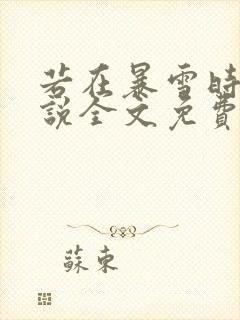 若在暴雪時
說全文免費
蘇東